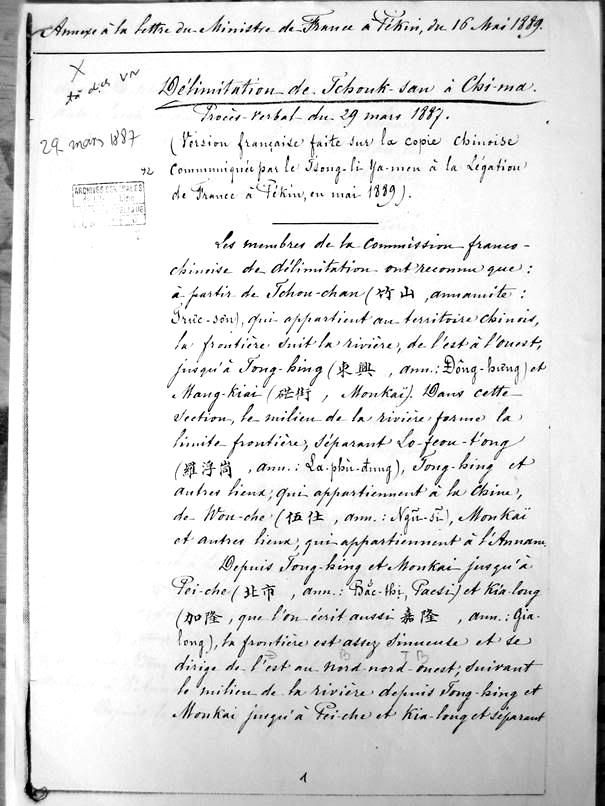 Annexe à la lettre du Ministre de France à Pékin, du 16 Mai 1889.
X
đã dịch VN
Délimitation de Tchouk-san à Chi-ma.
Procès-verbal du 29 mars 1887.
29 mars 1887
(Version française faite sur la copie chinoise
communiquée par le Tsong-li Ya-men à la Légation
de France à Pékin, en mai 1889).
ARCHIVES CENTRALES
Les membres de la Commission franco-
chinoise de délimitation ont reconnu que :
à partir de Tchou-chan (竹山, annamite :
Trúc-sơn), qui appartient au territoire chinois,
la frontière suit la rivière, de l'est à l'ouest,
jusqu'à Tong-hing (東興, ann.: Đông-hưng) et
Mang-kiai (硭街, Monkaï). Dans cette
section, le milieu de la rivière forme la
limite frontière, séparant Lo-feou-t'ong
(羅浮峝, ann.: La-phù-đung), Tong-hing et
autres lieux, qui appartiennent à la Chine,
de Wou-che (伍仕, ann.: Ngũ-sĩ), Monkaï
et autres lieux, qui appartiennent à l'Annam.
Depuis Tong-hing et Monkai jusqu'à
Pei-che (北市, ann.: Bắc-thị, Pacsi) et Kia-long
(加隆, que l'on écrit aussi 嘉隆, ann.: Gia-
long), la frontière est assez sinueuse et se
dirige de l'est au nord-nord-ouest, suivant
le milieu de la rivière depuis Tong-hing et
Monkai jusqu'à Pei-che et Kia-long et séparant
1